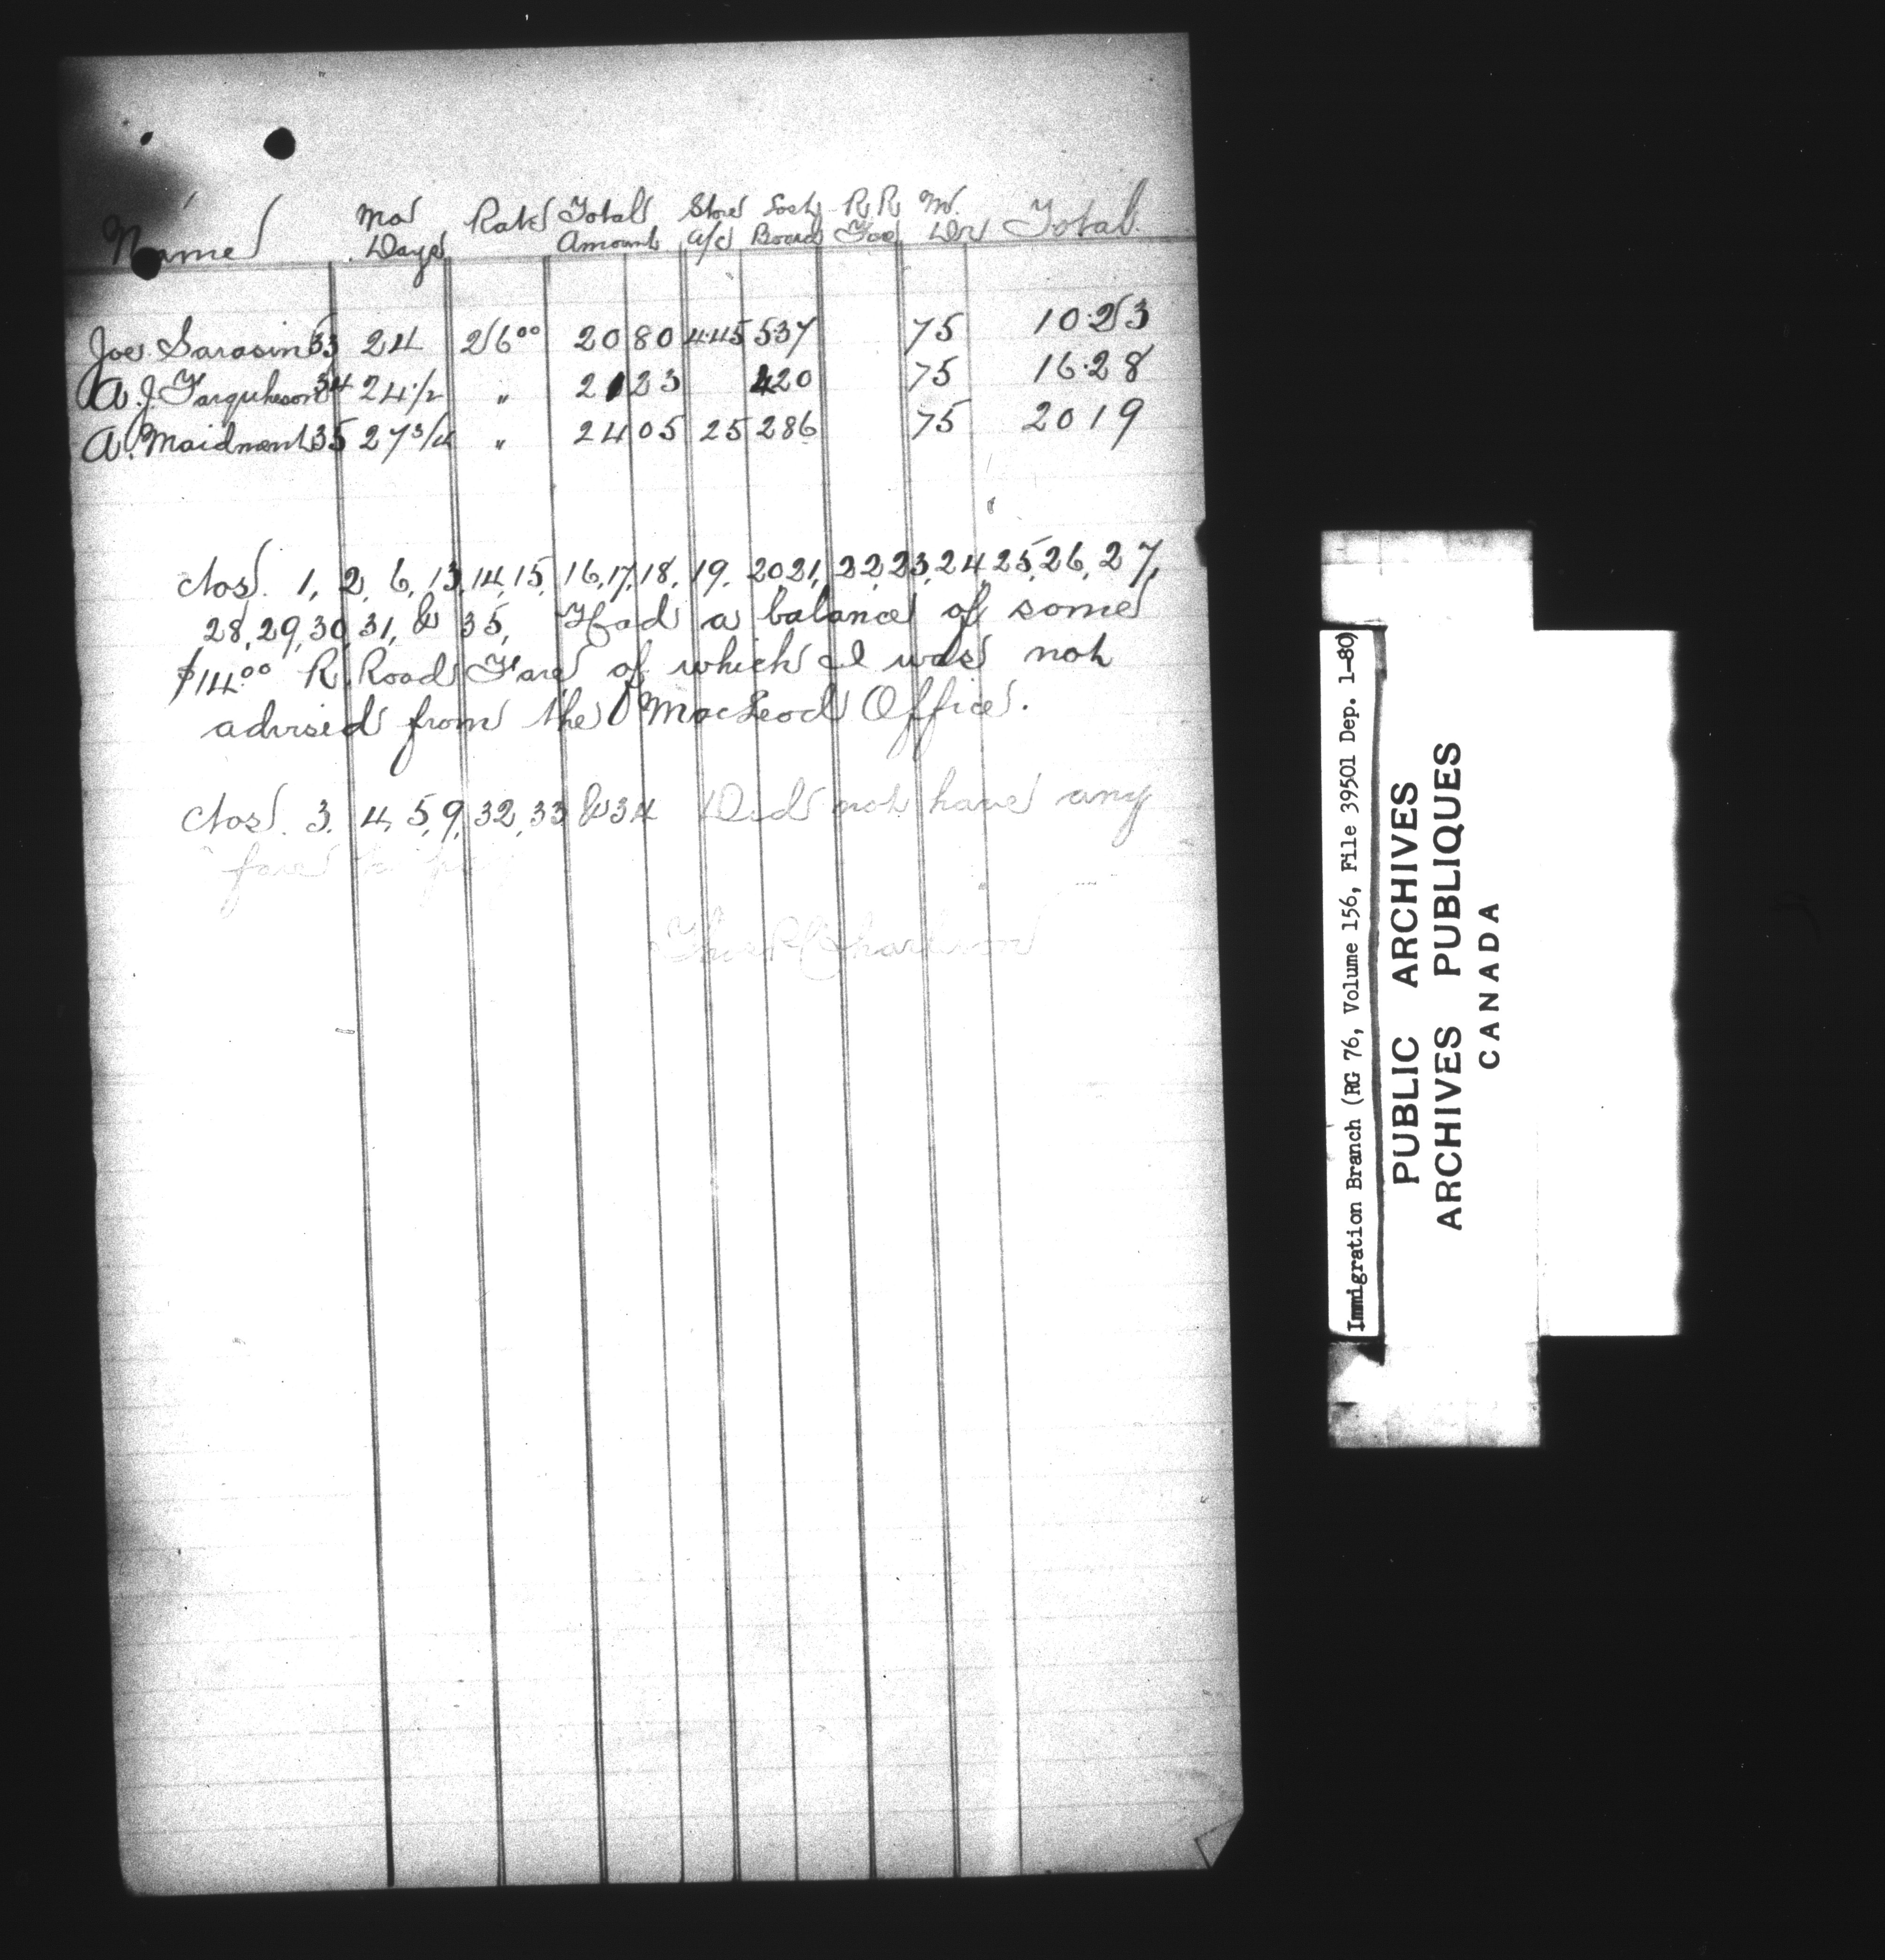 Name Mos Days Rate Total Amount Store a/c Lost Board R R Fare M. Dr Total
Joe Sarasin 33 24 26 00 20 80 4.45 5.37 75 10.23
A. J. Farquheson 34 24 1/2 " 21 23 4 20 75 16.28
A. Maidment 35 27 3/4 " 24 05 25 2 86 75 20 19
Nos. 1, 2, 6, 13, 14, 15, 16, 17, 18, 19, 20 21, 22 23, 24, 25, 26, 27,
28, 29, 30, 31, & 35, Had a balance of some
$14.00 R. Road Fare of which I was not
advised from the MacLeod Office.
Nos. 3, 4, 5, 9, 32, 33 & 34 Did not have any
fare to pay
Immigration Branch (RG 76, Volume 156, File 39501 Dep. 1-80)
PUBLIC ARCHIVES
ARCHIVES PUBLIQUES
CANADA